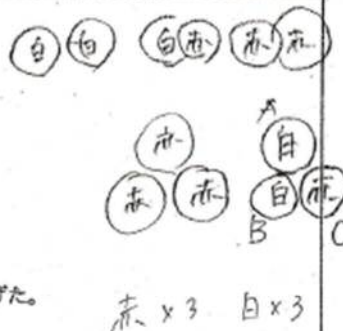 白 白 白 赤 赤 赤
A
赤 白
赤 赤 白 赤
B C
た。
赤×3 白×3